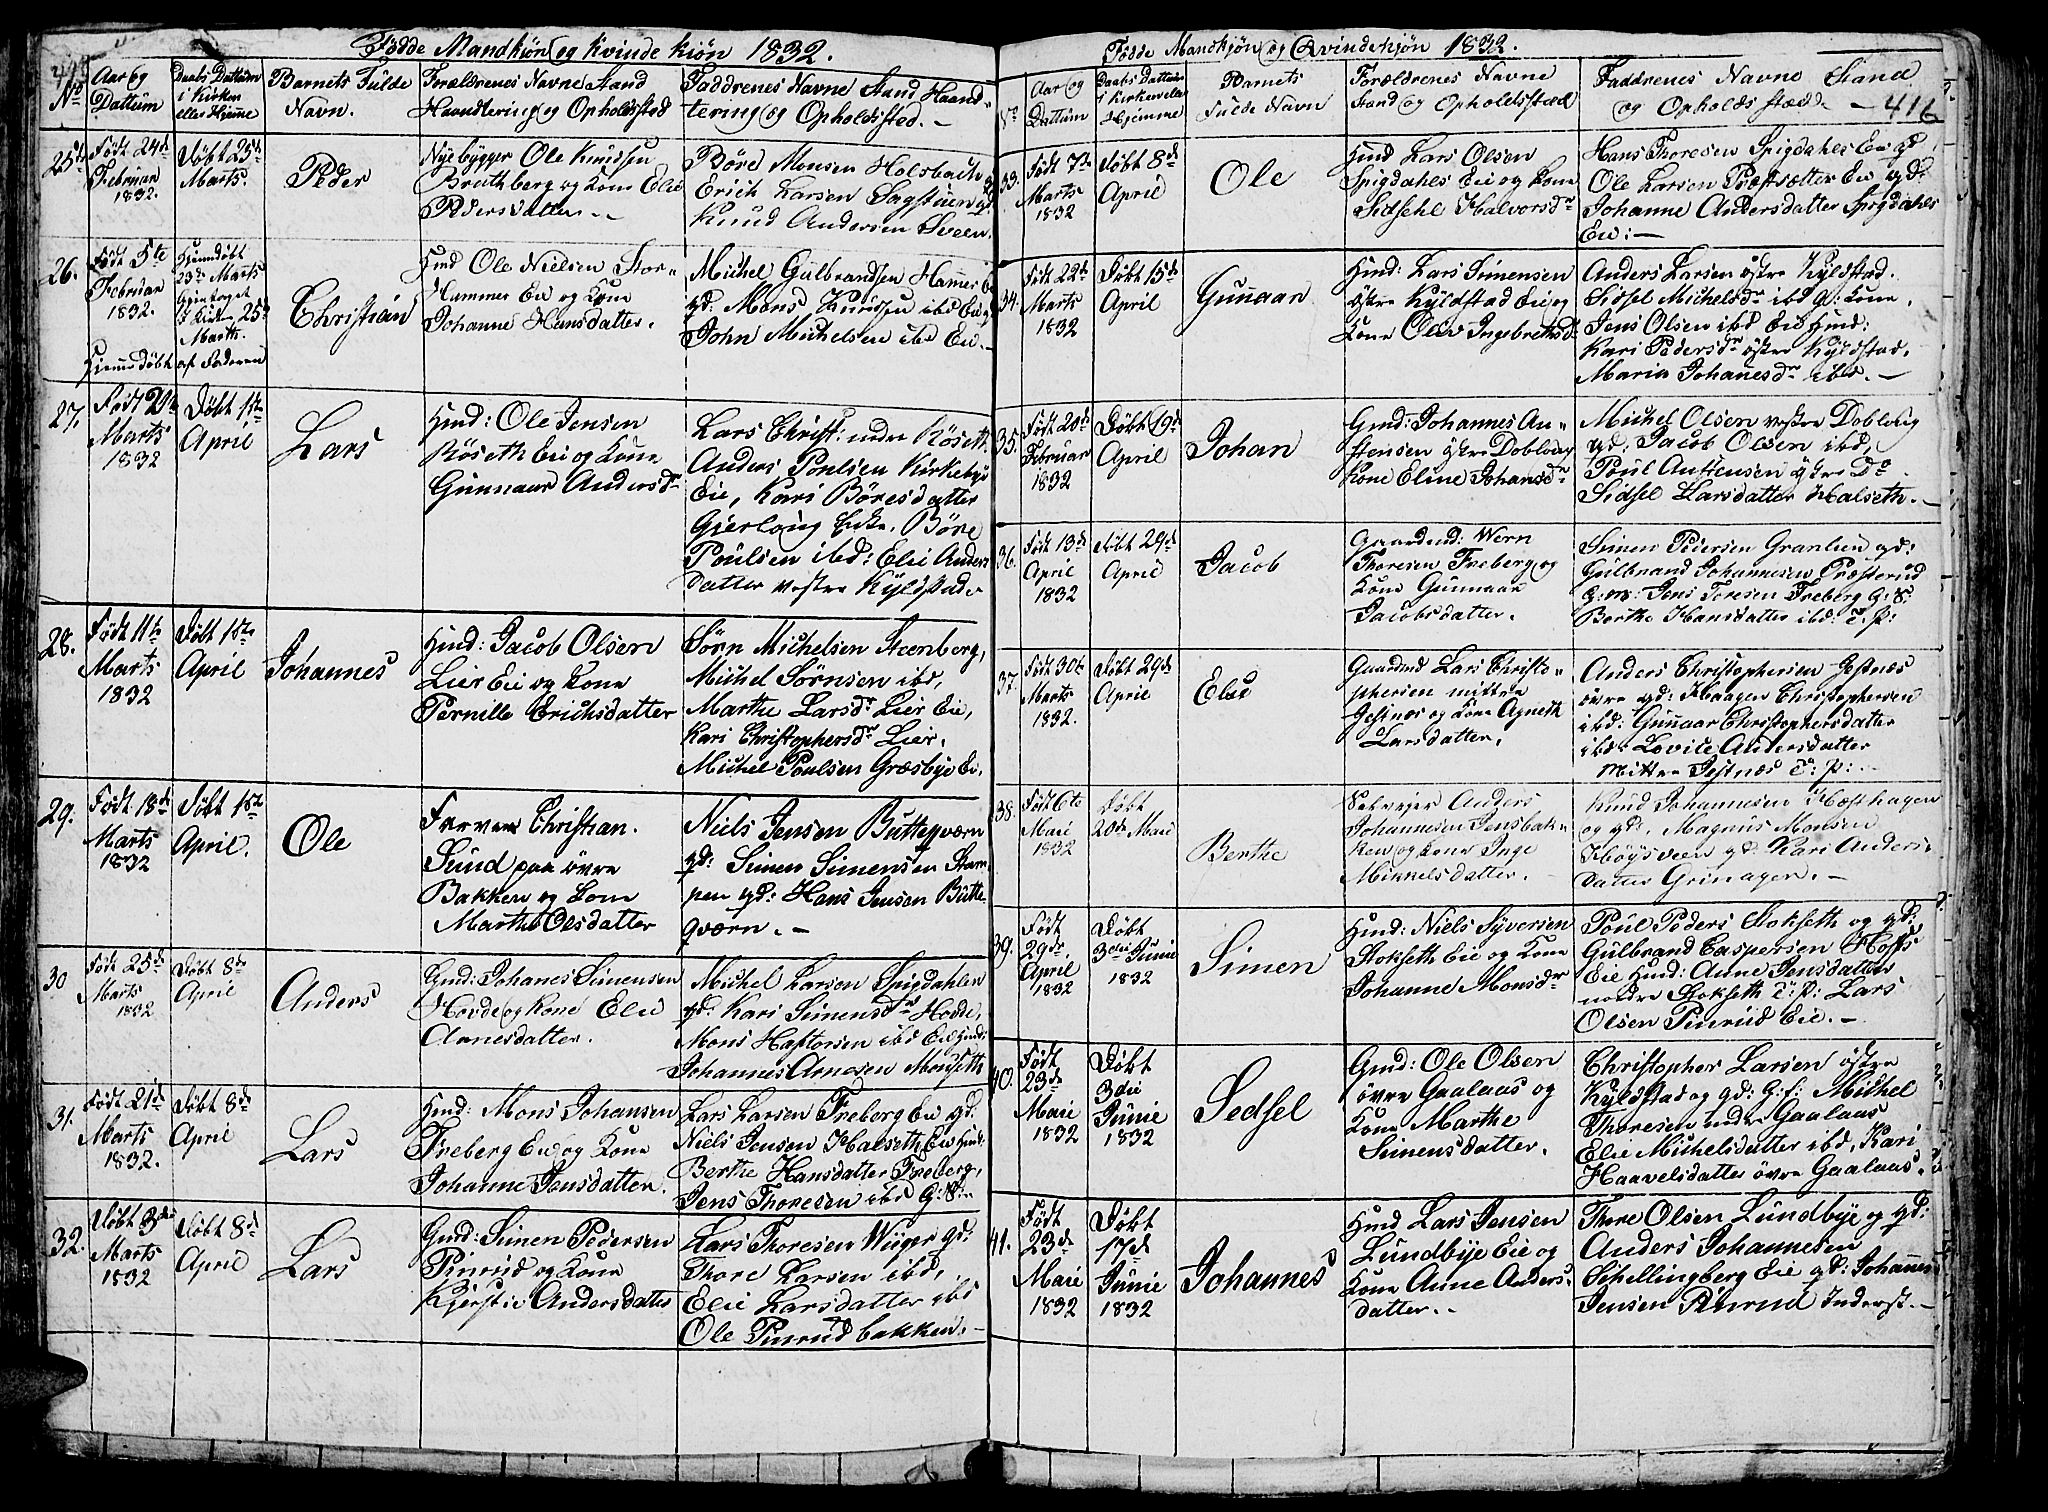 Fødde Mandkiøn og Kvinde kiøn 1832.
No
Aar og
Dattum
Daabs Dattum
i Kirken
eller Hjemme
Barnets Fulde
Navn.
Forældrenes Navne Stand
Haandtering og Opholdsted
Faddrenes Navne Stand Haand-
tering og Opholdsted.
25de
Født 24de
Februar
1832.
Døbt 25de
Marts.
Peder
Nyebygger Ole Knudsen
Brathberg og Kone Elie
Pedersdatter.
Børe Monsen Holsbach
Erich Larsen Sagstuen gd.
Knud Andersen Sveen.
26.
Født 5te
Februar
1832.
Hjemdøbt
Hjemdøbt
23de Marts
Igientaget
I Kirken 25de
Marth.
af Faderen
Christian
Hmd Ole Nielsen Stor-
Hammer Eie og Kone
Johanne Hansdatter.
Michel Gulbrandsen Hamer
gd. Mons Knudsen ibd Eie
John Michelsen ibd Eie.
27.
Født
Marts
1832
Døbt 1ste
April
Lars
Hmd: Ole Jensen
Røseth Eie og Kone
Gunnaar Andersdr
Lars Christ: nedre Røseth.
Anders Poulsen Kirkebye
Eie, Kari Børesdatter
Gjerloug Enke. Børe
Poulsen ibd: Elie Anders
datter vestre Kyldstad.
28.
Født 11te
Marts
1832
Døbt 1ste
April
Johannes
Hmd: Jacob Olsen
Lier Eie og Kone
Pernille Erichsdatter
Sørn Michelsen Steenberg,
Michel Sørnsen ibd,
Marthe Larsdr Lier Eie,
Kari Christophersdr Lier.
Michel Poulsen Græsbye Ei.
29.
Født 18de
Marts
1832
Døbt 1ste
April.
Ole
Farver Christian
Sund paa øvre
Bakken og Kone
Marthe Olsdatter
Niels Jensen Butteqværn
gd: Simen Simensen Stam-
pen gd: Hans Jensen Butte-
qværn.
30
Født 25de
Marts
1832
Døbt 8de
April
Anders
Gmd: Johanes Simensen
Hovde og Kone Elie
Arnesdatter.
Michel Larsen Spigdahlen
gd: Kari Simensdr Hovde,
Mons Haftorsen ibd Eie Hmd:
Johannes Arnesen Monseth
31.
Født 21de
Marts
1832.
Døbt 8de
April
Lars
Hmd: Mons Johansen
Freberg Eie og Kone
Johanne Jensdatter.
Lars Larsen Freberg Eie gd:
Niels Jensen Halseth Eie Hmd:
Berthe Hansdatter Freberg,
Jens Thoresen ibd G: S:
32.
Døbt 3die
Marts
1832
Døbt 8de
April
Lars
Gmd: Simen Pedersen
Pinrud og Kone
Kjerstie Andersdatter
Lars Thoresen Wiiger gd:
Thore Larsen ibd,
Elie Larsdatter ibd
Ole Pinrud bakken.
Fødde Mandkjøn og Qvindekjøn 1832.
416
No
Aar og
Dattum
Daabs Dattum
i Kirken eller
Hjemme
Barnets
Fulde Navn
Forældrenes Navne
Stand og Opholdsstæd
Faddrenes Navne Stand
og Opholdsstæd.
33.
Født 7de
Marts
1832
Døbt 8de
April
Ole
Hmd Lars Olsen
Spigdahls Eie og Kone
Sidsehl Halvorsdr
Hans Thoresen Spigdahls Eie gd
Ole Larsen Præstsætter Eie gd:
Johanne Andersdatter Spigdahls
Eie:
34.
Født 22de
Marts
1832
Døbt 15de
April
Gunnaar
Hmd: Lars Simensen
østre Kyldstad Eie og
Kone Olev Ingebretsd.
Anders Larsen østre Kyldstad.
Sidsel Michelsdr ibd g: Kone,
Jens Olsen ibd Eie Hmd:
Kari Pedersdr østre Kyldstad,
Maria Johanesdr ibd.
35.
Født 20de
Februar
1832
Døbt 19de
April
Johan
Gmd: Johannes Au-
stensen østre Doblong
Kone Eline Johansdr
Michel Olsen vestre Doblong
gd: Jacob Olsen ibd,
Poul Austensen østre Do
Sidsel Larsdatter Halseth.
36.
Født 13de
April
1832
Døbt 29de
April
Jacob
Gaardmd: Wern
Thoresen Freberg og
Kone Gunnaar
Jacobsdatter.
Simen Pedersen Granlien gd:
Gulbrand Johannesen Præsterud
G: m: Jens Toresen Freberg G: S:
Berthe Hansdatter ibd: T: p:
37.
Født 30te
Marts
1832.
Døbt 29de
April
Elie
Gaardmd Lars Christo-
phersen mittre
Jestnes og Kone Agneth
Larsdatter.
Anders Christophersen Jestnæs
øvre gd: Haagen Christophersen
ibd: Gunnaar Christophersdatter
ibd: Lovise Andersdatter
Mittre Jestnæs T: p:
38.
Født 6te
Maei
1832
Døbt
20de Maei
Berthe
Selveier Anders
Johannesen Jensbak-
ken og Kone Inge
Mikkelsdatter.
Knud Johannesen Hæsthagen
og gd, Magnus Monsen
Høysveen gd Kari Anders-
datter Grinager.
39.
Født
29de
April
1832
Døbt
3die Junie
1832
Simen
Hmd: Niels Syversen
Stokseth Eie og Kone
Johanne Monsdr
Poul Peders Stokseth og gd:
Gulbrand Caspersen Hoffs
Eie Hmd: Anne Jensdatter
nordre Stokseth T: p: Lars
Olsen Pinrud Eie.
40.
Født
23de
Maie
1832
Døbt
3die
Junie
1832
Sedsel
Gmd: Ole Olsen
øvre Gaalaas og
Kone Marthe
Simensdatter.
Christopher Larsen østre
Kyldstad og gd: G: f: Michel
Thoresen nedre Gaalaas
Elie Michelsdatter ibd, Kari
Haavelsdatter øvre Gaalaas.
41.
Født
23de
Maie
1832
Døbt
17de
Junie
1832
Johannes
Hmd Lars Jensen
Lundbye Eie og
Kone Anne Anders-
datter.
Thore Olsen Lundbye og gd:
Anders Johannesen
Schellingberg Eie gd: Johannes
Jensen Pinrud Inderst.